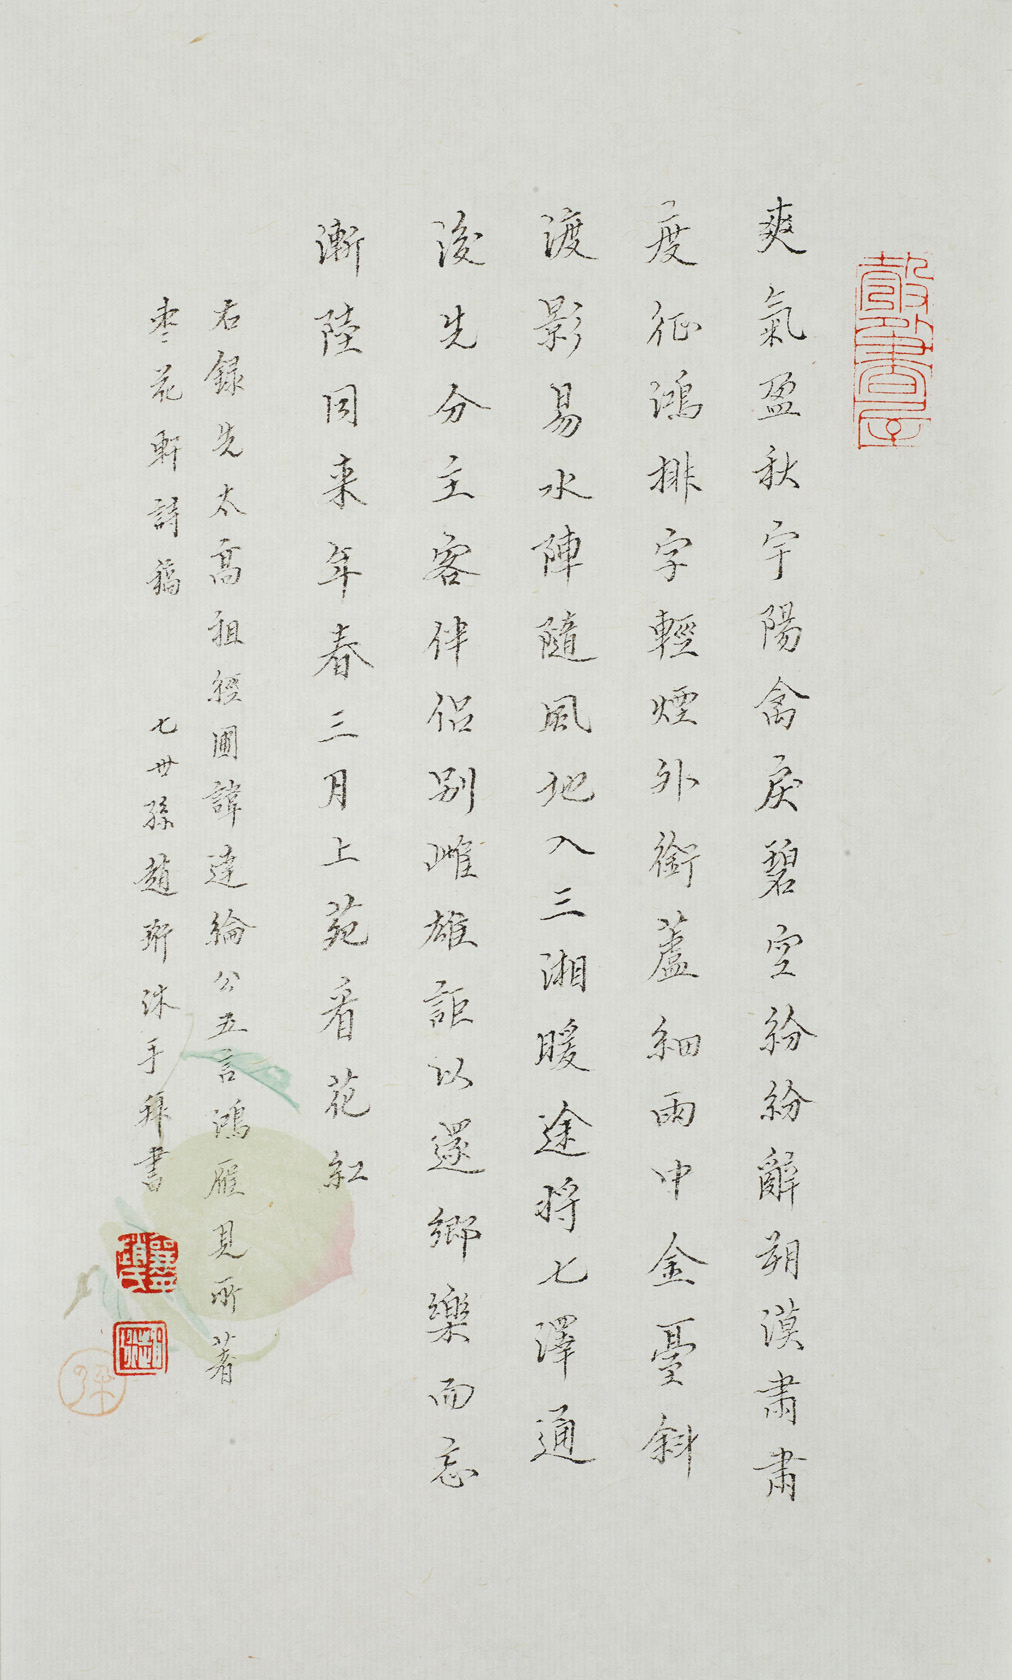 爽氣盈秋宇陽禽戾碧空紛紛辭朔漠肅肅
度征鴻排字輕煙外銜蘆細雨中金臺斜
渡影易水陣隨風地入三湘暖途將七澤通
後先分主客伴侶別雌雄詎以還鄉樂而忘
漸陸同来年春三月上苑看花紅
右録先太高祖經圃諱達綸公五言鴻雁見所著
枣花軒詩稿
七世孫趙珩沐手拜書